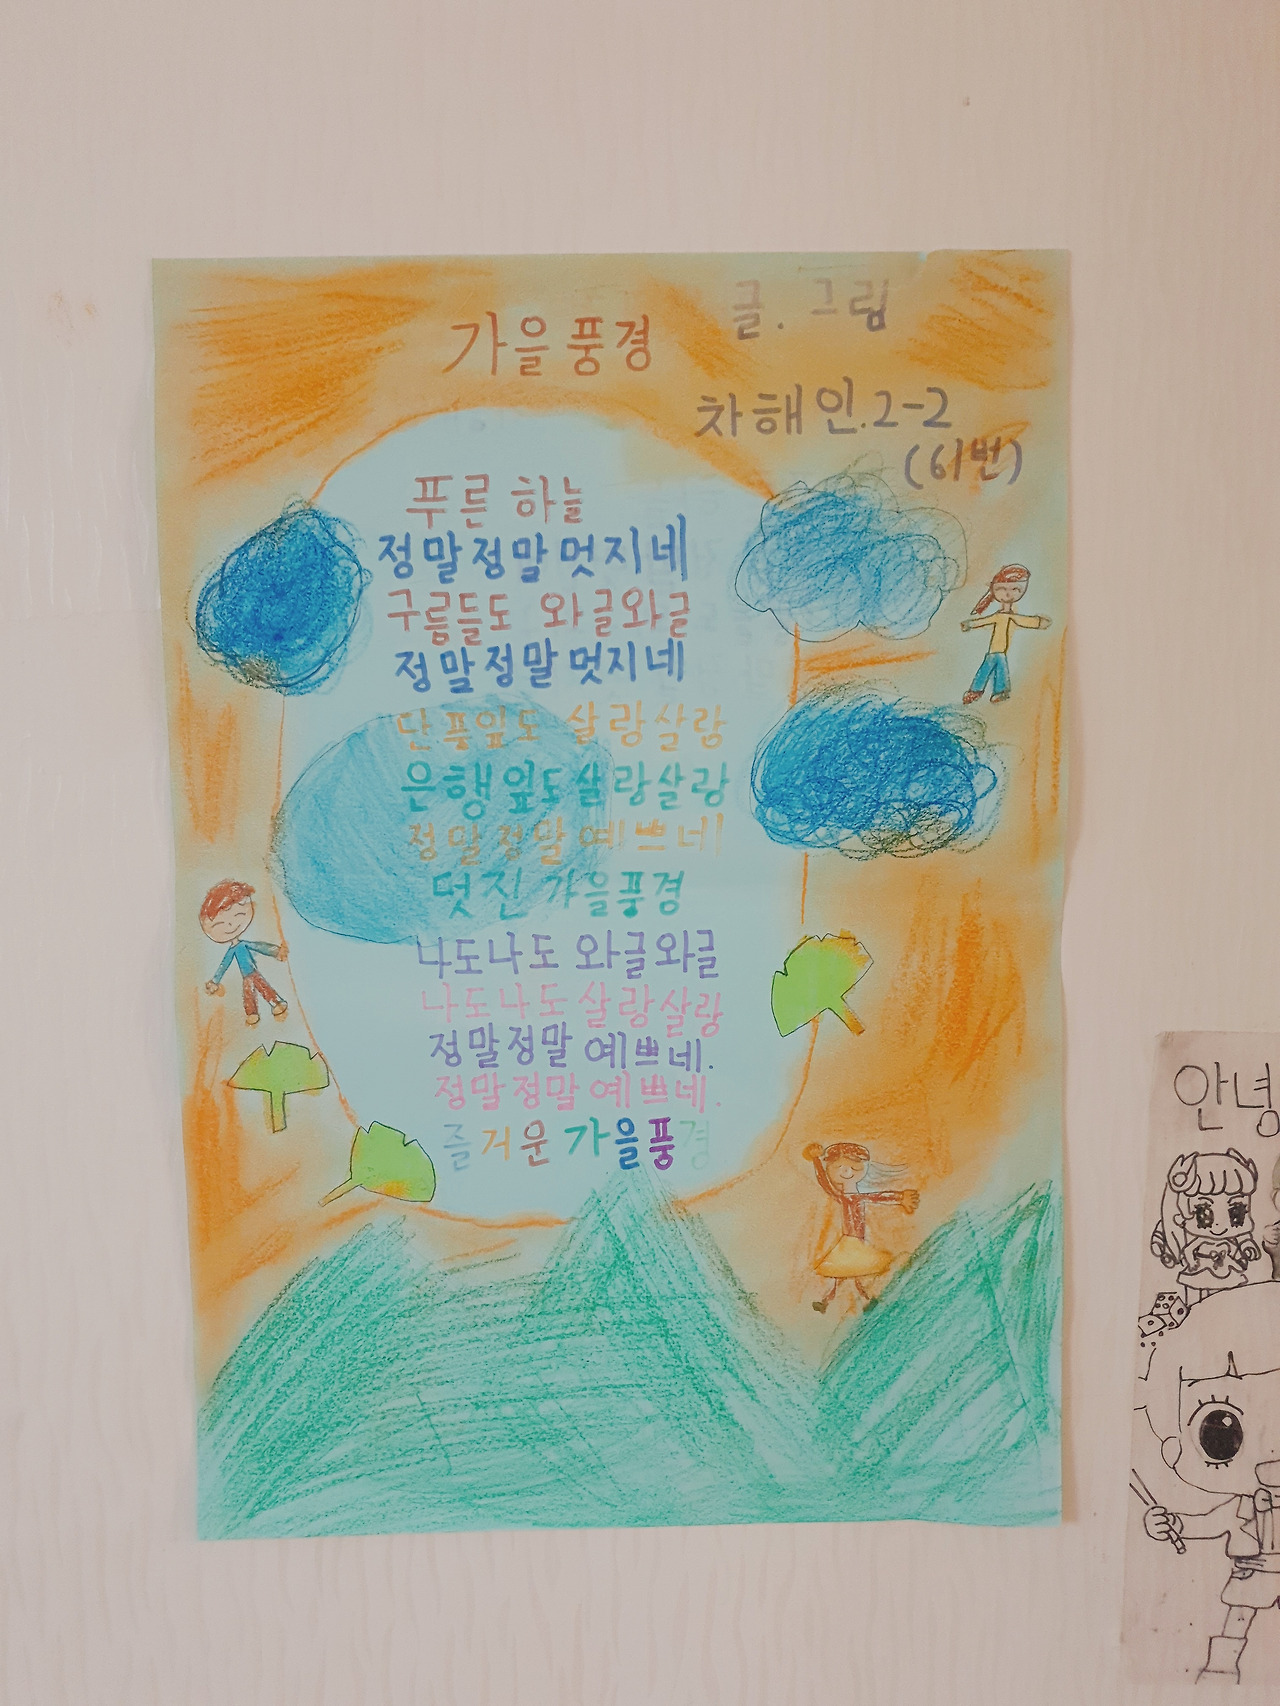 가을풍경
글. 그림
차해인.2-2
(61번)
푸른 하늘
정말정말멋지네
구름들도 와글와글
정말정말멋지네
단풍잎도 살랑살랑
은행잎도살랑살랑
정말정말예쁘네
멋진 가을풍경
나도나도 와글와글
나도나도살랑살랑
정말정말 예쁘네.
정말정말예쁘네.
즐거운 가을풍경
안녕